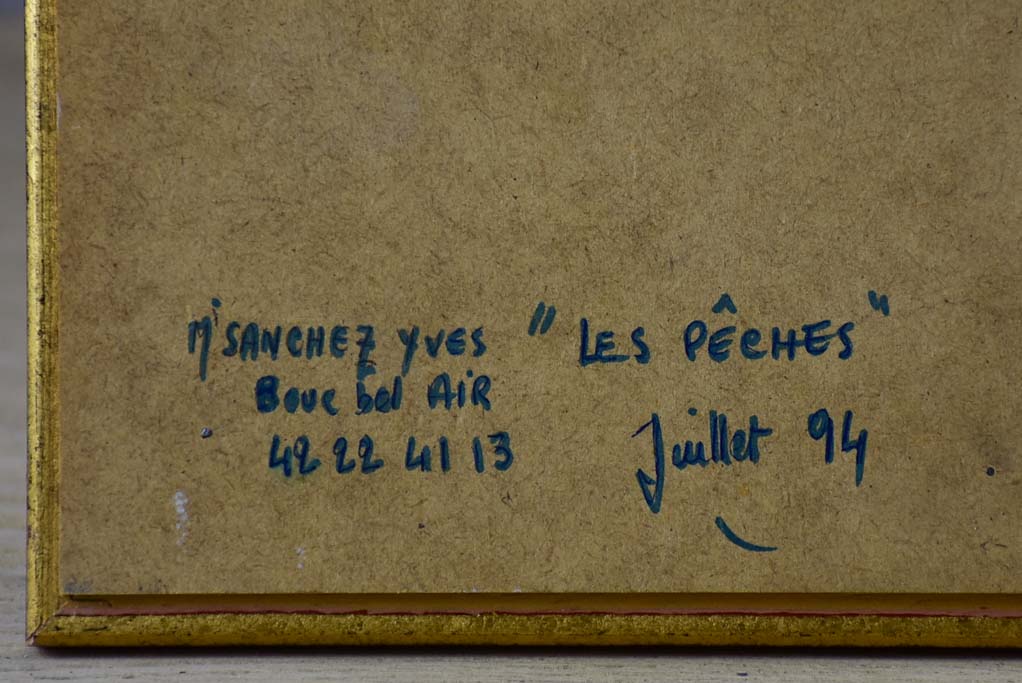 Mr SANCHEZ YVES
Bouc bel AiR
42 22 41 13
" LES PÊCHES "
Juillet 94